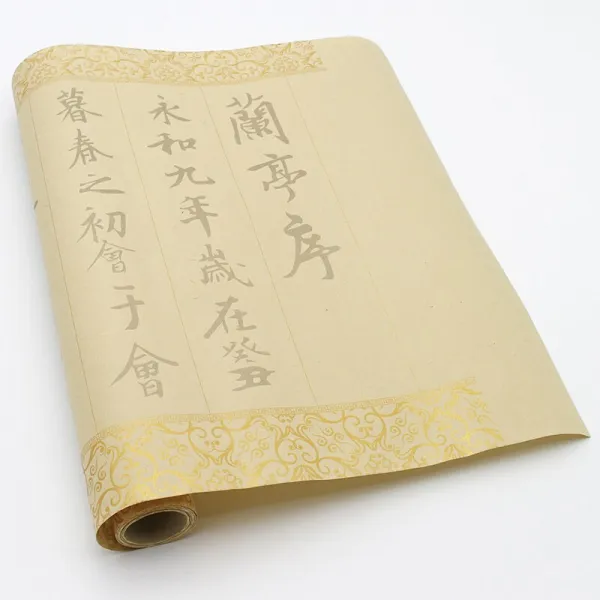 蘭亭序
永和九年歲在癸丑
暮春之初會于會